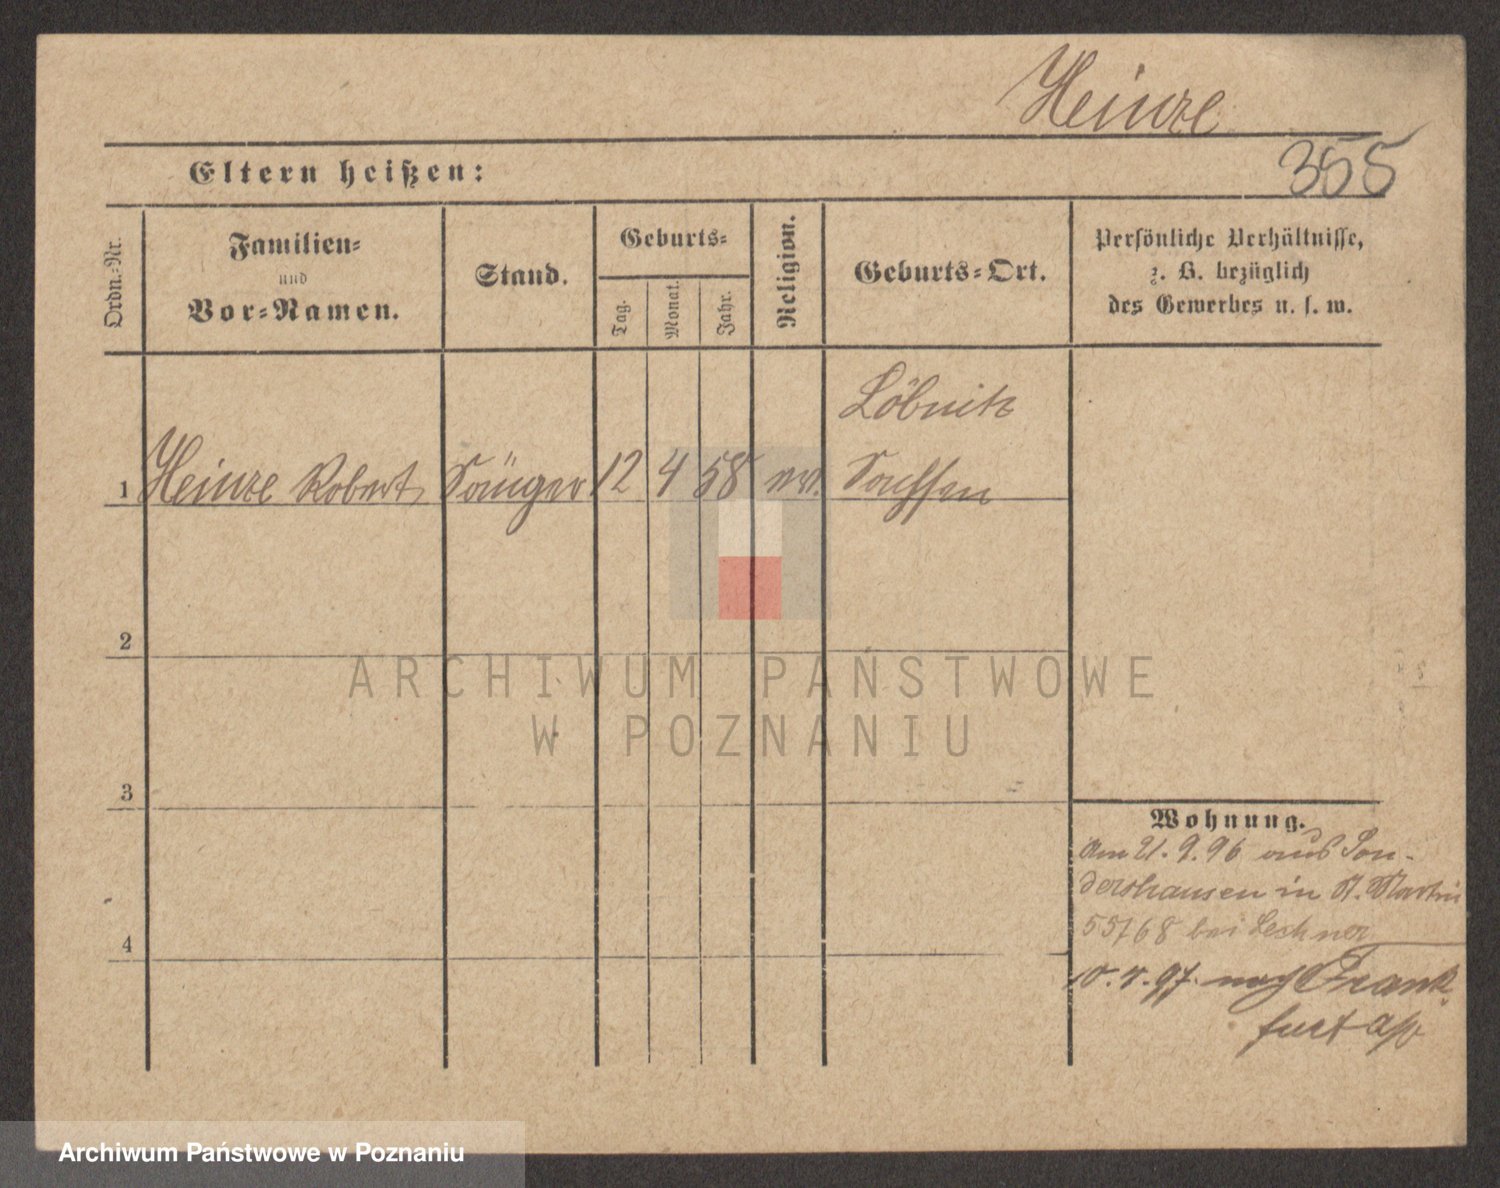 Heinze
355
Eltern heißen:
Ordn.-Nr.
Familien-
und
Vor-Namen.
Stand.
Geburts-
Tag.
Monat.
Jahr.
Religion.
Geburts-Ort.
Persönliche Verhältnisse,
z. B. bezüglich
des Gewerbes u. s. w.
Löbnitz
1 Heinze Robert Sänger 12 4 58 ev. Sachsen
2
ARCHIWUM PAŃSTWOWE
W POZNANIU
3
Wohnung.
Am 21.9.96 aus Son-
dershausen in St. Martin
4
55/68 bei Lechner
10.4.97. nach Frank-
furt a/o
Archiwum Państwowe w Poznaniu